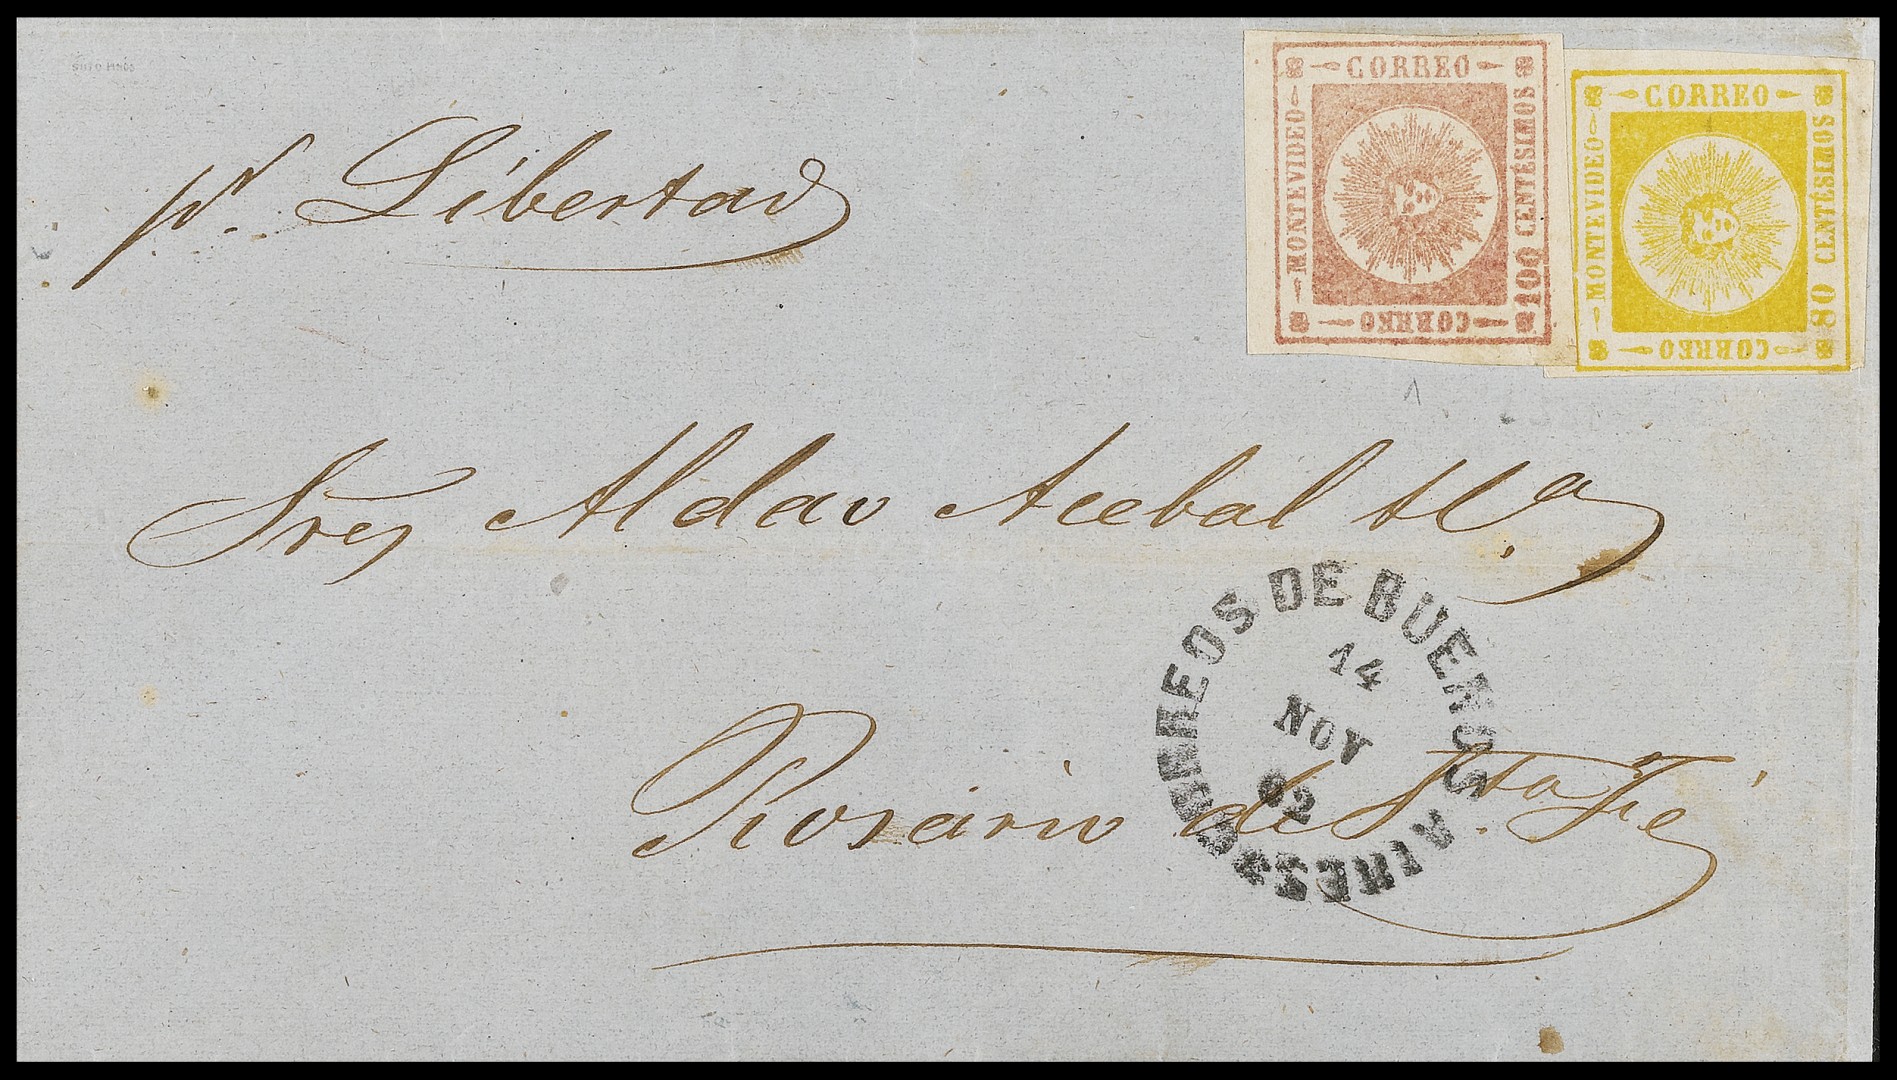 pr. Libertad
CORREO
MONTEVIDEO
100 CENTÉSIMOS
CORREO
CORREO
MONTEVIDEO
80 CENTÉSIMOS
CORREO
Sres Aldao Acebal &Cª
CORREOS DE BUENOS AIRES
14
NOV
62
Rosario de Sta. Fé